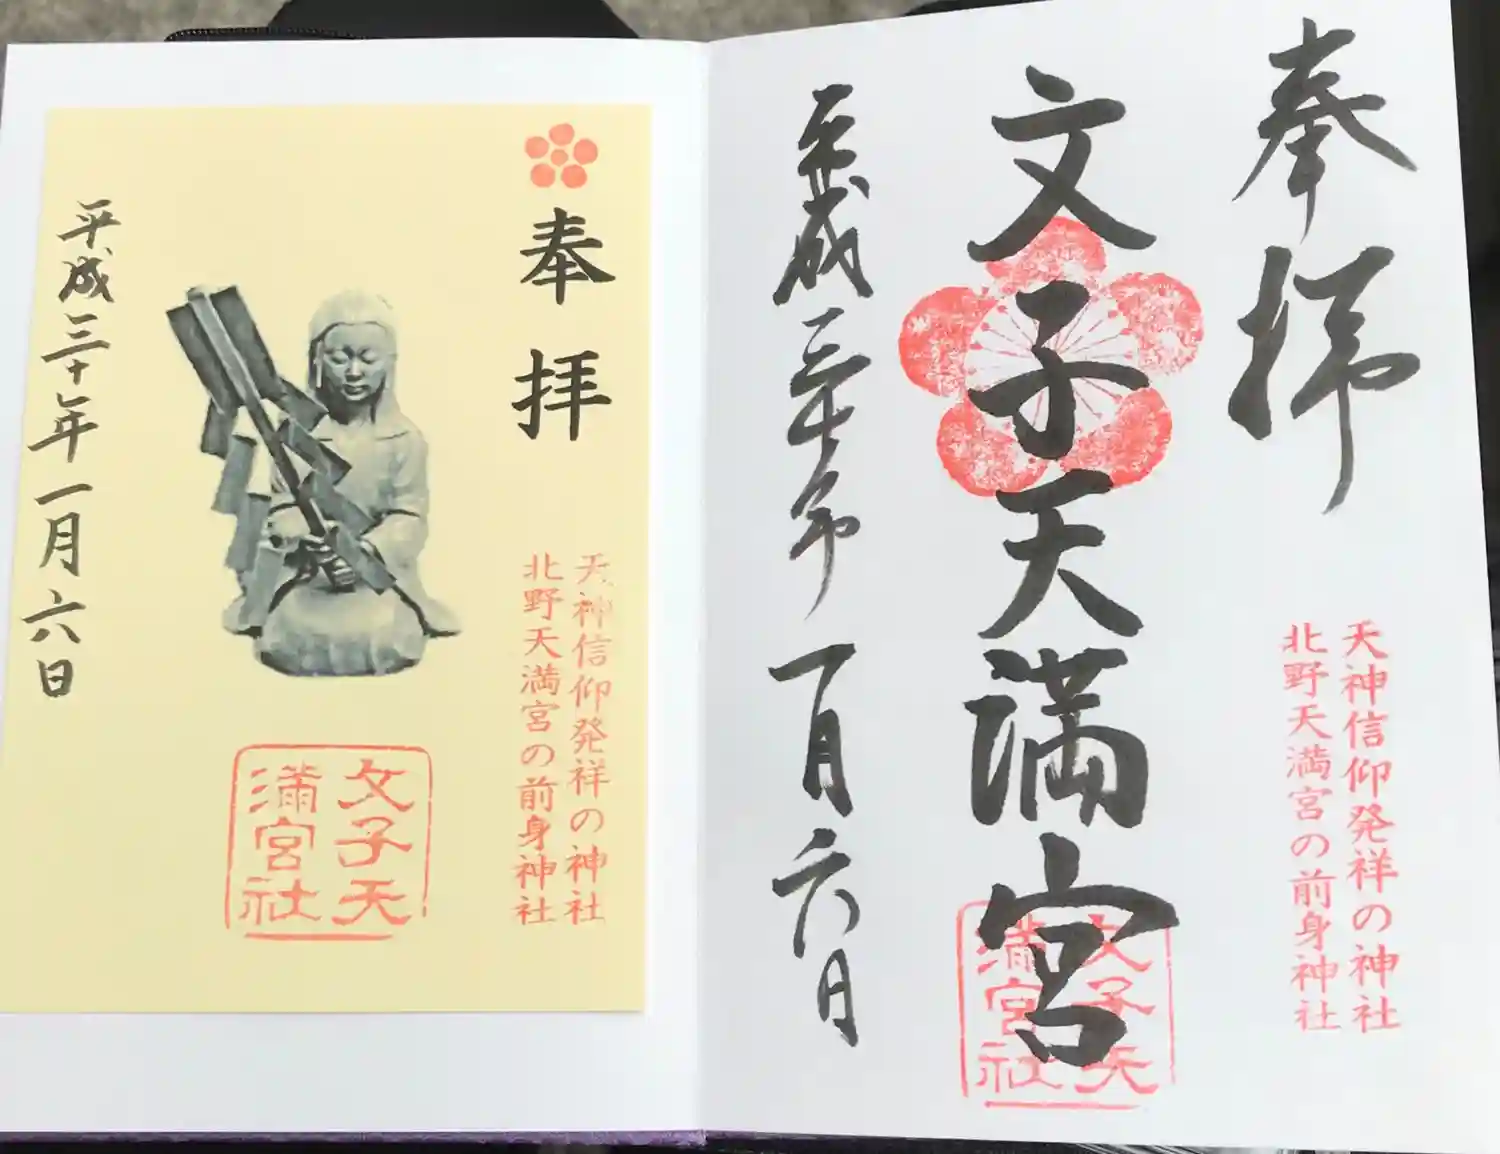 奉拝
天神信仰発祥の神社
北野天満宮の前身神社
文子天満宮
文子天
満宮社
平成三十年一月六日
奉拝
天神信仰発祥の神社
北野天満宮の前身神社
文子天
満宮社
平成三十年一月六日